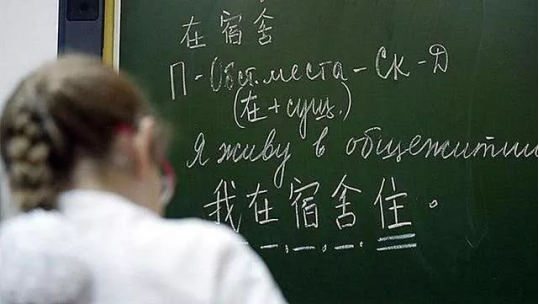 在宿舍
П - Обст. места - Ск - Д
(在 + сущ.)
Я живу в общежитии
我在宿舍住。